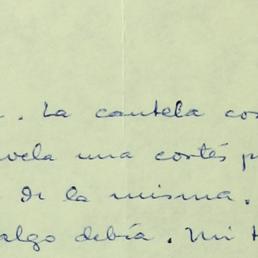 . La cautela co
vela una cortés p
de la misma.
algo debía. Mi